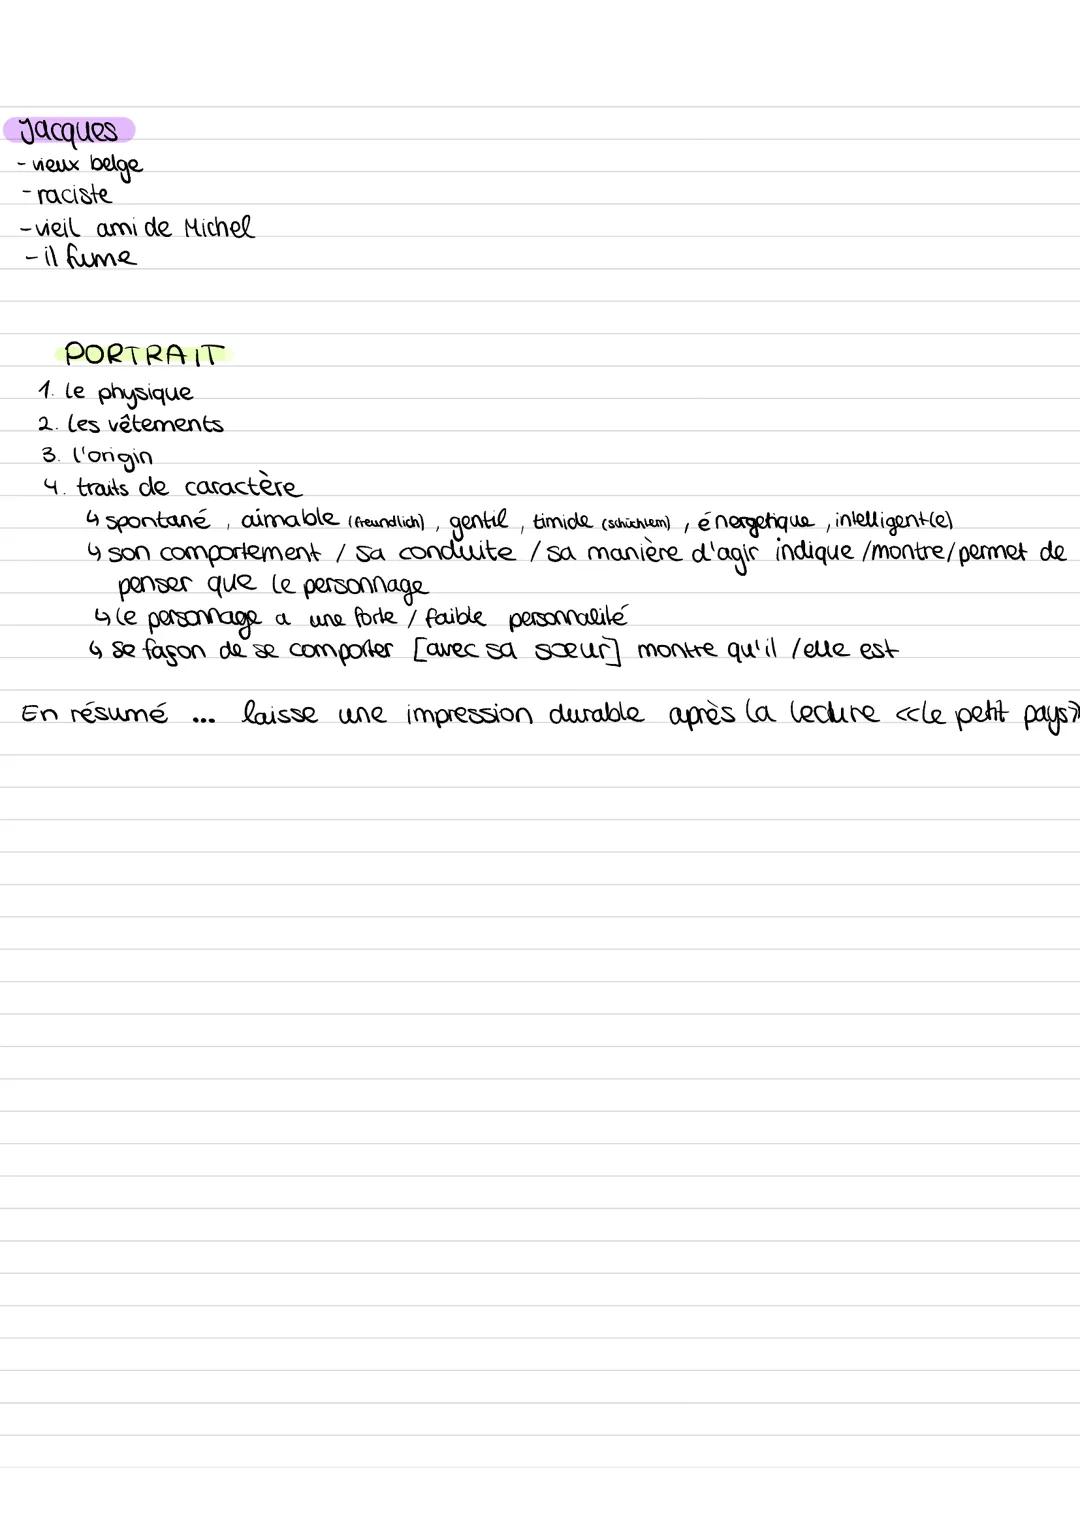 Jacques
- vieux belge
- raciste
- vieil ami de Michel
- il fume
PORTRAIT
1. le physique
2. les vêtements
3. l'origin
4. traits de caractère
↳ spontané, aimable (freundlich), gentil, timide (schüchtern), énergetique, intelligent(e)
↳ son comportement / sa conduite / sa manière d'agir indique /montre/permet de
penser que le personnage
↳ le personnage a une forte / faible personnalité
↳ se façon de se comporter [avec sa sœur] montre qu'il /elle est
En résumé ... laisse une impression durable après la lecture <<le petit pays>>